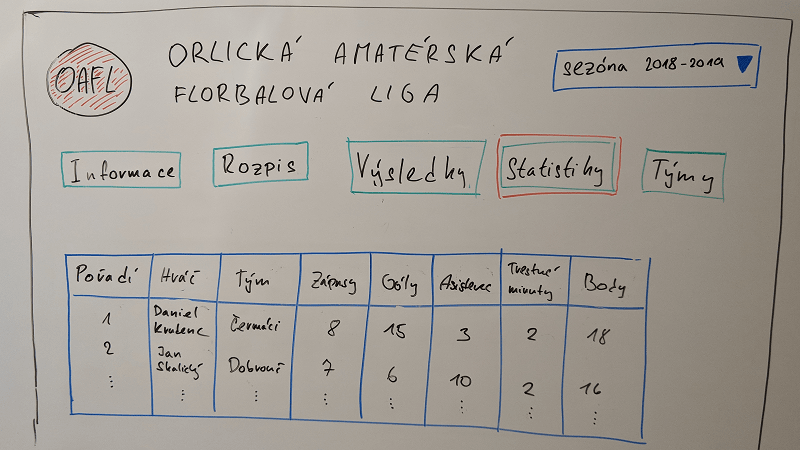 OAFL
ORLICKÁ AMATÉRSKÁ
FLORBALOVÁ LIGA
sezóna 2018-2019
Informace Rozpis Výsledky Statistiky Týmy
Pořadí Hráč Tým Zápasy Góly Asistence Trestné minuty Body
1 Daniel Čermáci 8 15 3 2 18
2 Jan Skalický Dobrouč 7 6 10 2 16
⋮ ⋮ ⋮ ⋮ ⋮ ⋮ ⋮ ⋮